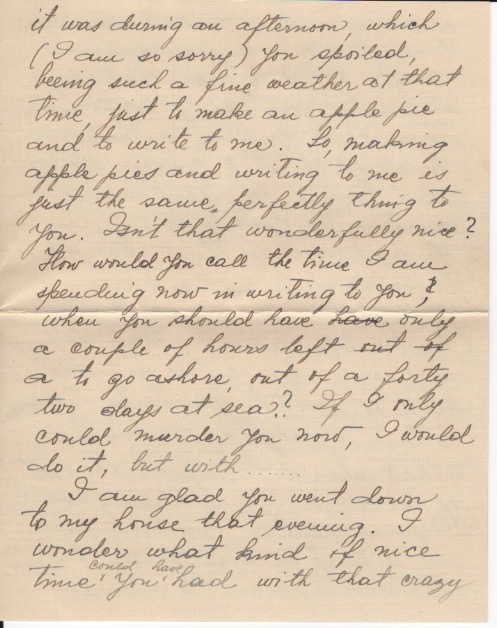 it was during an afternoon, which
(I am so sorry) you spoiled,
beeing such a fine weather at that
time, just to make an apple pie
and to write to me. So, making
apple pies and writing to me is
just the same, perfectly thing to
you. Isn't that wonderfully nice?
How would you call the time I am
spending now in writing to you,?
when you should have have only
a couple of hours left out of
a to go ashore, out of a forty
two days at sea.? If I only
could murder you now, I would
do it, but with .......
I am glad you went down
to my house that evening. I
wonder what kind of nice
could have
time you had with that crazy